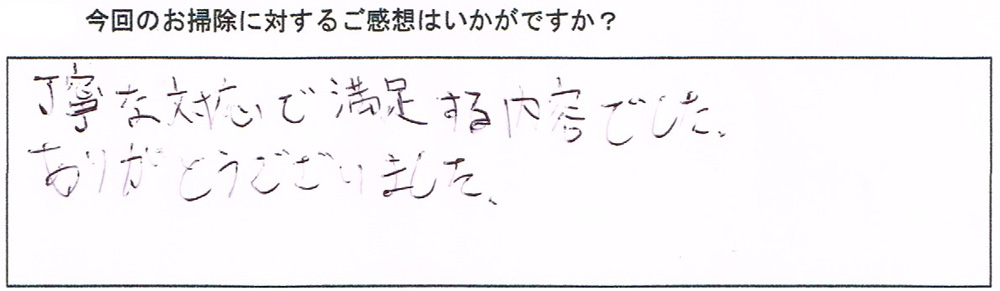 今回のお掃除に対するご感想はいかがですか？
丁寧な対応で満足する内容でした、
ありがとうございました、